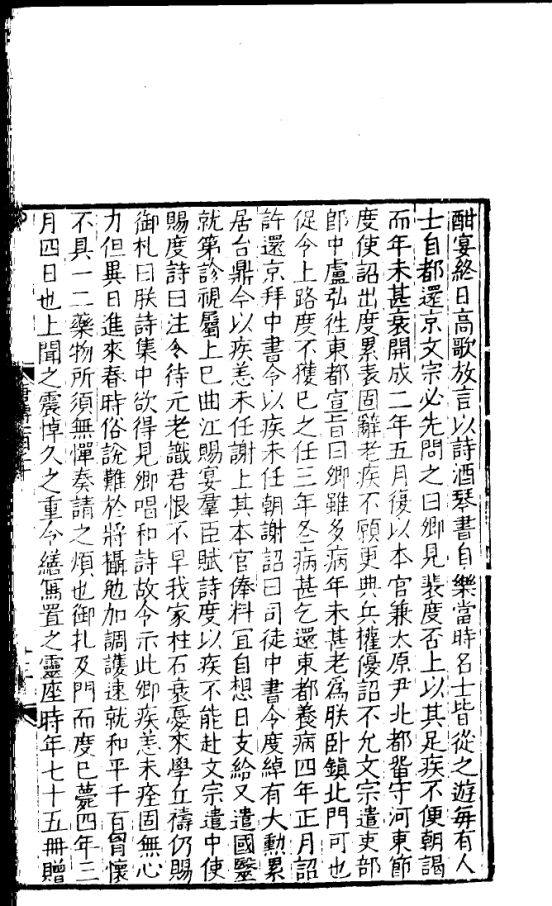 酣宴終日高歌放言以詩酒琴書自樂當時名士皆從之遊毎有人
士自都還京文宗必先問之曰卿見裴度否上以其足疾不便朝謁
而年未甚衰開成二年五月復以本官兼太原尹北都畱守河東節
度使詔出度累表固辭老疾不願更典兵權優詔不允文宗遣吏部
郎中盧弘往東都宣旨曰卿雖多病年未甚老爲朕卧鎮北門可也
促令上路度不獲已之任三年冬病甚乞還東都養病四年正月詔
許還京拜中書令以疾未任朝謝詔曰司徒中書令度綽有大勲累
居台鼎今以疾恙未任謝上其本官俸料冝自想日支給又遣國醫
就第診視屬上巳曲江賜宴羣臣賦詩度以疾不能赴文宗遣中使
賜度詩曰注令待元老識君恨不早我家柱石衰憂來學丘禱仍賜
御札曰朕詩集中欲得見卿唱和詩故令示此卿疾恙未痊固無心
力但異日進來春時俗說難於將攝勉加調護速就和平千百胷懷
不具一二藥物所須無憚奏請之煩也御扎及門而度已薨四年三
月四日也上聞之震悼久之重令繕寫置之靈座時年七十五冊贈